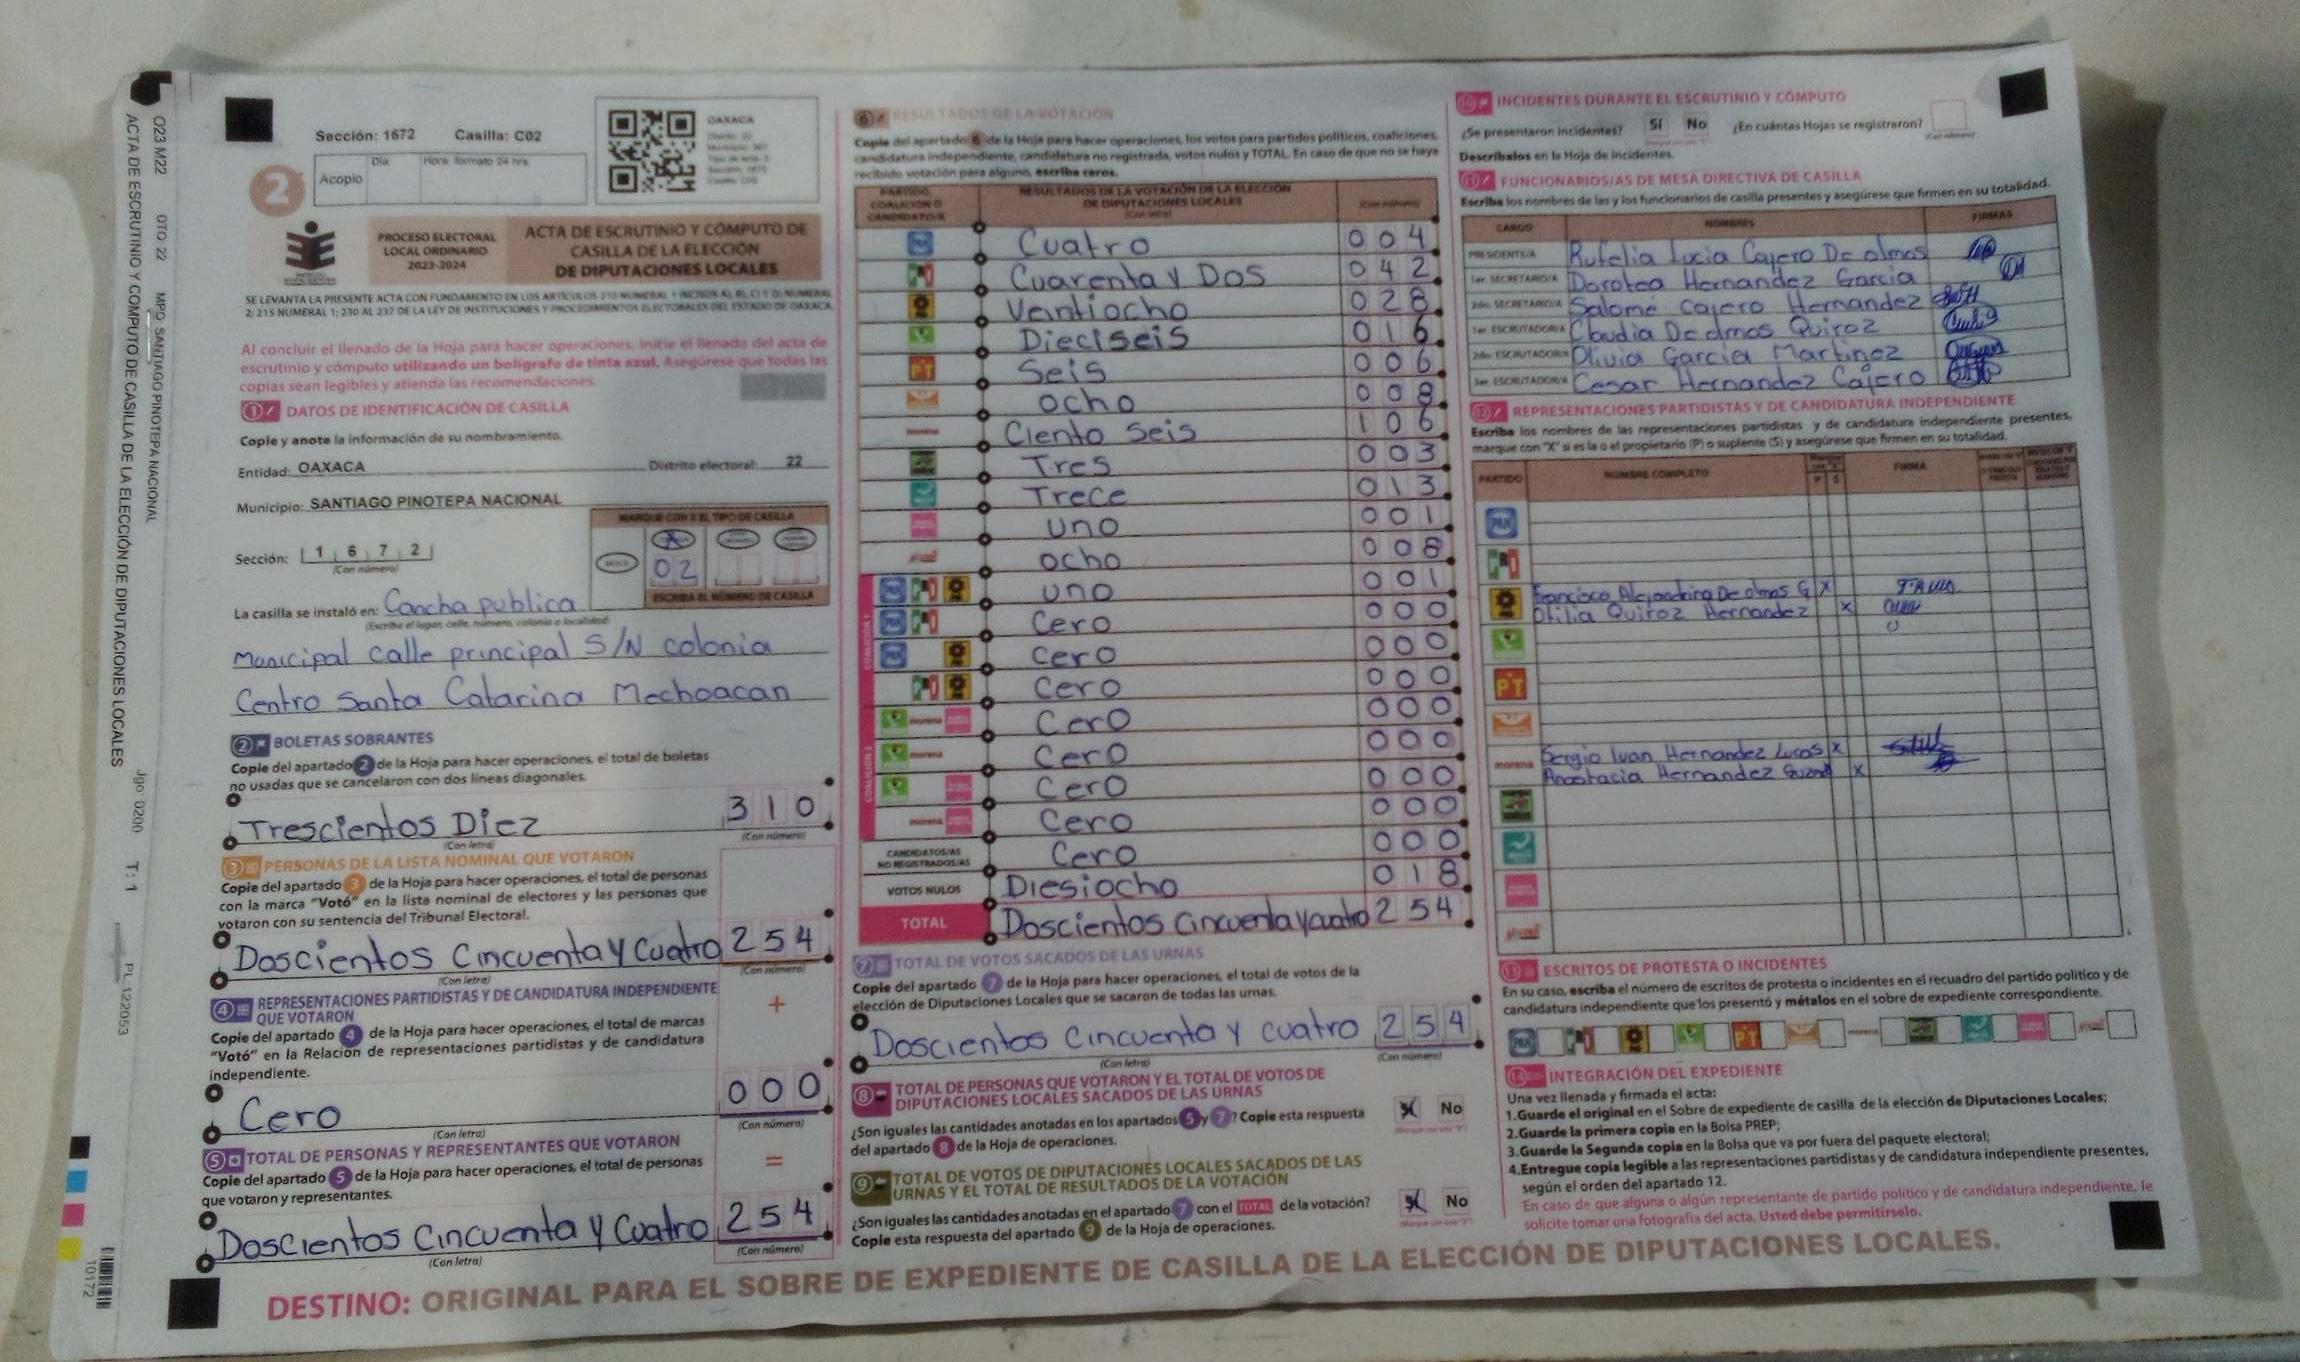 O23 M22 DTO 22 MPO SANTIAGO PINOTEPA NACIONAL Jgo: 0200 T: 1 PL 122053
ACTA DE ESCRUTINIO Y CÓMPUTO DE CASILLA DE LA ELECCIÓN DE DIPUTACIONES LOCALES
10172
Sección: 1672 Casilla: C02
2
Acopio
Día
Hora, formato 24 hrs
OAXACA
PROCESO ELECTORAL
LOCAL ORDINARIO
2023-2024
ACTA DE ESCRUTINIO Y CÓMPUTO DE
CASILLA DE LA ELECCIÓN
DE DIPUTACIONES LOCALES
2; 215 NUMERAL 1; 230 AL 237 DE LA LEY DE INSTITUCIONES Y PROCEDIMIENTOS ELECTORALES DEL ESTADO DE OAXACA
Al concluir el llenado de la Hoja para hacer operaciones, inicie el llenado del acta de
escrutinio y cómputo utilizando un bolígrafo de tinta azul. Asegúrese que todas las
copias sean legibles y atienda las recomendaciones.
1 DATOS DE IDENTIFICACIÓN DE CASILLA
Copie y anote la información de su nombramiento.
Entidad: OAXACA Distrito electoral: 22
Municipio: SANTIAGO PINOTEPA NACIONAL
Sección: 1 6 7 2
(Con número)
MARQUE CON X EL TIPO DE CASILLA
X
02
ESCRIBA EL NÚMERO DE CASILLA
La casilla se instaló en: Cancha publica
(Escriba el lugar, calle, número, colonia o localidad)
Municipal calle principal S/N colonia
Centro Santa Catarina Mechoacan
2 BOLETAS SOBRANTES
Copie del apartado 2 de la Hoja para hacer operaciones, el total de boletas
no usadas que se cancelaron con dos líneas diagonales.
Trescientos Diez 310
(Con letra) (Con número)
3 PERSONAS DE LA LISTA NOMINAL QUE VOTARON
Copie del apartado 3 de la Hoja para hacer operaciones, el total de personas
con la marca "Votó" en la lista nominal de electores y las personas que
votaron con su sentencia del Tribunal Electoral.
Doscientos Cincuenta y Cuatro 254
(Con letra) (Con número)
4 REPRESENTACIONES PARTIDISTAS Y DE CANDIDATURA INDEPENDIENTE
QUE VOTARON
+
Copie del apartado 4 de la Hoja para hacer operaciones, el total de marcas
"Votó" en la Relación de representaciones partidistas y de candidatura
independiente.
Cero 000
(Con letra) (Con número)
5 TOTAL DE PERSONAS Y REPRESENTANTES QUE VOTARON
=
Copie del apartado 5 de la Hoja para hacer operaciones, el total de personas
que votaron y representantes.
Doscientos Cincuenta y Cuatro 254
(Con letra) (Con número)
6 RESULTADOS DE LA VOTACIÓN
Copie del apartado 6 de la Hoja para hacer operaciones, los votos para partidos políticos, coaliciones,
candidatura independiente, candidatura no registrada, votos nulos y TOTAL. En caso de que no se haya
recibido votación para alguno, escriba ceros.
PARTIDO, COALICIÓN O CANDIDATO/A
RESULTADOS DE LA VOTACIÓN DE LA ELECCIÓN
DE DIPUTACIONES LOCALES
(Con letra) (Con número)
PAN Cuatro 004
PRI Cuarenta y Dos 042
Veintiocho 028
Dieciseis 016
PT Seis 006
ocho 008
morena Ciento Seis 106
Tres 003
Trece 013
uno 001
ocho 008
COALICIÓN 1
PAN PRI uno 001
PAN PRI Cero 000
PAN Cero 000
PRI Cero 000
COALICIÓN 2
morena Cero 000
morena Cero 000
Cero 000
morena Cero 000
CANDIDATOS/AS
NO REGISTRADOS/AS Cero 000
VOTOS NULOS Diesiocho 018
TOTAL Doscientos Cincuenta y cuatro 254
7 TOTAL DE VOTOS SACADOS DE LAS URNAS
Copie del apartado 7 de la Hoja para hacer operaciones, el total de votos de la
elección de Diputaciones Locales que se sacaron de todas las urnas.
Doscientos Cincuenta y cuatro 254
(Con letra) (Con número)
8 TOTAL DE PERSONAS QUE VOTARON Y EL TOTAL DE VOTOS DE
DIPUTACIONES LOCALES SACADOS DE LAS URNAS
¿Son iguales las cantidades anotadas en los apartados 5 y 7? Copie esta respuesta
del apartado 8 de la Hoja de operaciones.
X No
9 TOTAL DE VOTOS DE DIPUTACIONES LOCALES SACADOS DE LAS
URNAS Y EL TOTAL DE RESULTADOS DE LA VOTACIÓN
¿Son iguales las cantidades anotadas en el apartado 7 con el TOTAL de la votación?
Copie esta respuesta del apartado 9 de la Hoja de operaciones.
X No
10 INCIDENTES DURANTE EL ESCRUTINIO Y CÓMPUTO
¿Se presentaron incidentes? Sí No ¿En cuántas Hojas se registraron?
(Con número)
Descríbalos en la Hoja de incidentes.
11 FUNCIONARIOS/AS DE MESA DIRECTIVA DE CASILLA
Escriba los nombres de las y los funcionarios de casilla presentes y asegúrese que firmen en su totalidad.
CARGO NOMBRES FIRMAS
PRESIDENTE/A Rufelia Lucia Cajero De olmos
1er. SECRETARIO/A Dorotea Hernandez Garcia
2do. SECRETARIO/A Salomé cajero Hernandez
1er. ESCRUTADOR/A Claudia De olmos Quiroz
2do. ESCRUTADOR/A Olivia Garcia Martinez
3er. ESCRUTADOR/A Cesar Hernandez Cajero
12 REPRESENTACIONES PARTIDISTAS Y DE CANDIDATURA INDEPENDIENTE
Escriba los nombres de las representaciones partidistas y de candidatura independiente presentes,
marque con "X" si es la o el propietario (P) o suplente (S) y asegúrese que firmen en su totalidad.
PARTIDO NOMBRE COMPLETO P S FIRMA
PAN
PRI
Francisco Alejandrina De olmos G X
Otilia Quiroz Hernandez X
PT
morena Sergio Ivan Hernandez Lucas X
Anastacia Hernandez X
13 ESCRITOS DE PROTESTA O INCIDENTES
En su caso, escriba el número de escritos de protesta o incidentes en el recuadro del partido político y de
candidatura independiente que los presentó y métalos en el sobre de expediente correspondiente.
PAN PRI PT morena
14 INTEGRACIÓN DEL EXPEDIENTE
Una vez llenada y firmada el acta:
1.Guarde el original en el Sobre de expediente de casilla de la elección de Diputaciones Locales;
2.Guarde la primera copia en la Bolsa PREP;
3.Guarde la Segunda copia en la Bolsa que va por fuera del paquete electoral;
4.Entregue copia legible a las representaciones partidistas y de candidatura independiente presentes,
según el orden del apartado 12.
En caso de que alguna o algún representante de partido político y de candidatura independiente, le
solicite tomar una fotografía del acta, Usted debe permitírselo.
DESTINO: ORIGINAL PARA EL SOBRE DE EXPEDIENTE DE CASILLA DE LA ELECCIÓN DE DIPUTACIONES LOCALES.